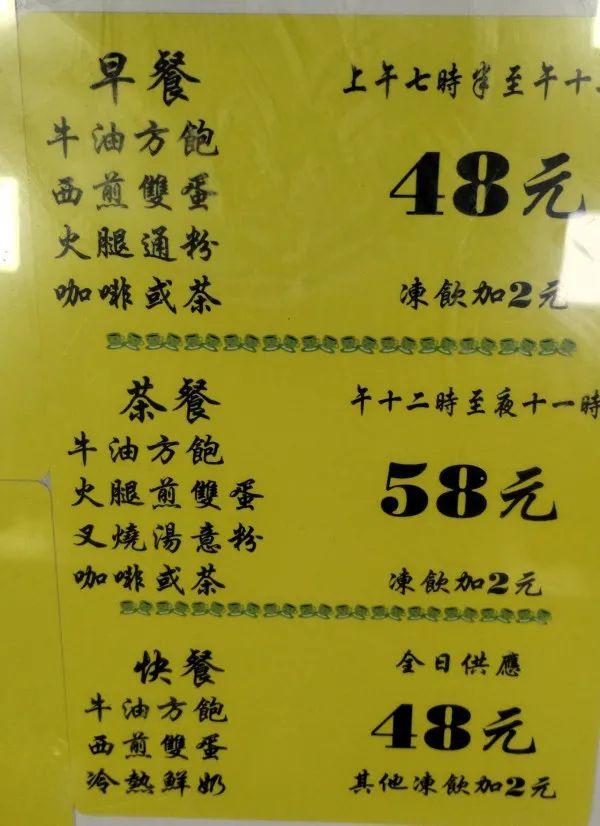 早餐
上午七時半至午十
牛油方飽
西煎雙蛋
火腿通粉
咖啡或茶
48元
凍飲加2元
茶餐
午十二時至夜十一時
牛油方飽
火腿煎雙蛋
叉燒湯意粉
咖啡或茶
58元
凍飲加2元
快餐
全日供應
牛油方飽
西煎雙蛋
冷熱鮮奶
48元
其他凍飲加2元